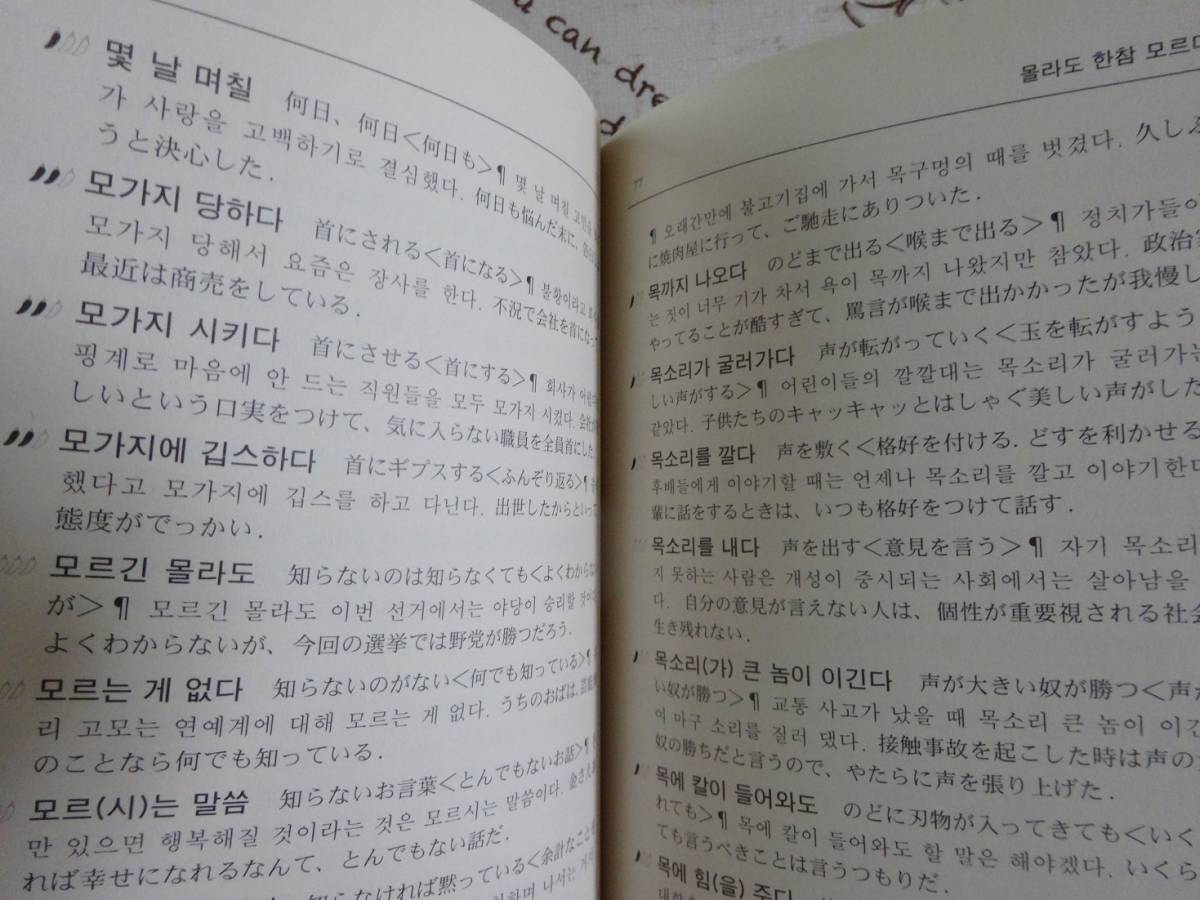 can dre
몰라도 한참 모르
몇 날 며칠 何日、何日<何日も>¶ 몇 날 며칠 고민
가 사랑을 고백하기로 결심했다. 何日も悩んだ末に,
うと決心した.
모가지 당하다 首にされる<首になる>¶ 불황이라고
모가지 당해서 요즘은 장사를 한다. 不況で会社を首になっ
最近は商売をしている.
모가지 시키다 首にさせる<首にする>¶ 회사가 어렵
핑계로 마음에 안 드는 직원들을 모두 모가지 시켰다. 会社が
しいという口実をつけて、気に入らない職員を全員首にした
모가지에 깁스하다 首にギプスする<ふんぞり返る>¶
했다고 모가지에 깁스를 하고 다닌다. 出世したからといって
態度がでっかい.
모르긴 몰라도 知らないのは知らなくても<よくわからない
が>¶ 모르긴 몰라도 이번 선거에서는 야당이 승리할 것이
よくわからないが、今回の選挙では野党が勝つだろう.
모르는 게 없다 知らないのがない<何でも知っている>¶
리 고모는 연예계에 대해 모르는 게 없다. うちのおばは、芸能
のことなら何でも知っている.
모르(시)는 말씀 知らないお言葉<とんでもないお話>¶
만 있으면 행복해질 것이라는 것은 모르시는 말씀이다. 金さえあ
れば幸せになれるなんて、とんでもない話だ.
知らなければ黙っている<余計なこ
하며 나서는
77
¶ 오래간만에 불고기집에 가서 목구멍의 때를 벗겼다. 久しぶ
に焼肉屋に行って、ご馳走にありついた.
목까지 나오다 のどまで出る<喉まで出る>¶ 정치가들이
는 짓이 너무 기가 차서 욕이 목까지 나왔지만 참았다. 政治家
やってることが酷すぎて、罵言が喉まで出かかったが我慢し
목소리가 굴러가다 声が転がっていく<玉を転がすよう
しい声がする>¶ 어린이들의 깔깔대는 목소리가 굴러가는
같았다. 子供たちのキャッキャッとはしゃぐ美しい声がした
목소리를 깔다 声を敷く<格好を付ける. どすを利かせる
후배들에게 이야기할 때는 언제나 목소리를 깔고 이야기한다
輩に話をするときは、いつも格好をつけて話す.
목소리를 내다 声を出す<意見を言う>¶ 자기 목소리
지 못하는 사람은 개성이 중시되는 사회에서는 살아남을
다. 自分の意見が言えない人は、個性が重要視される社会
生き残れない.
목소리(가) 큰 놈이 이긴다 声が大きい奴が勝つ<声が
い奴が勝つ>¶ 교통 사고가 났을 때 목소리 큰 놈이 이긴
여 마구 소리를 질러 댔다. 接触事故を起こした時は声の
奴の勝ちだと言うので、やたらに声を張り上げた.
목에 칼이 들어와도 のどに刃物が入ってきても<いく
れても>¶ 목에 칼이 들어와도 할 말은 해야겠다. いくら
ても言うべきことは言うつもりだ.
목에 힘(을) 주다